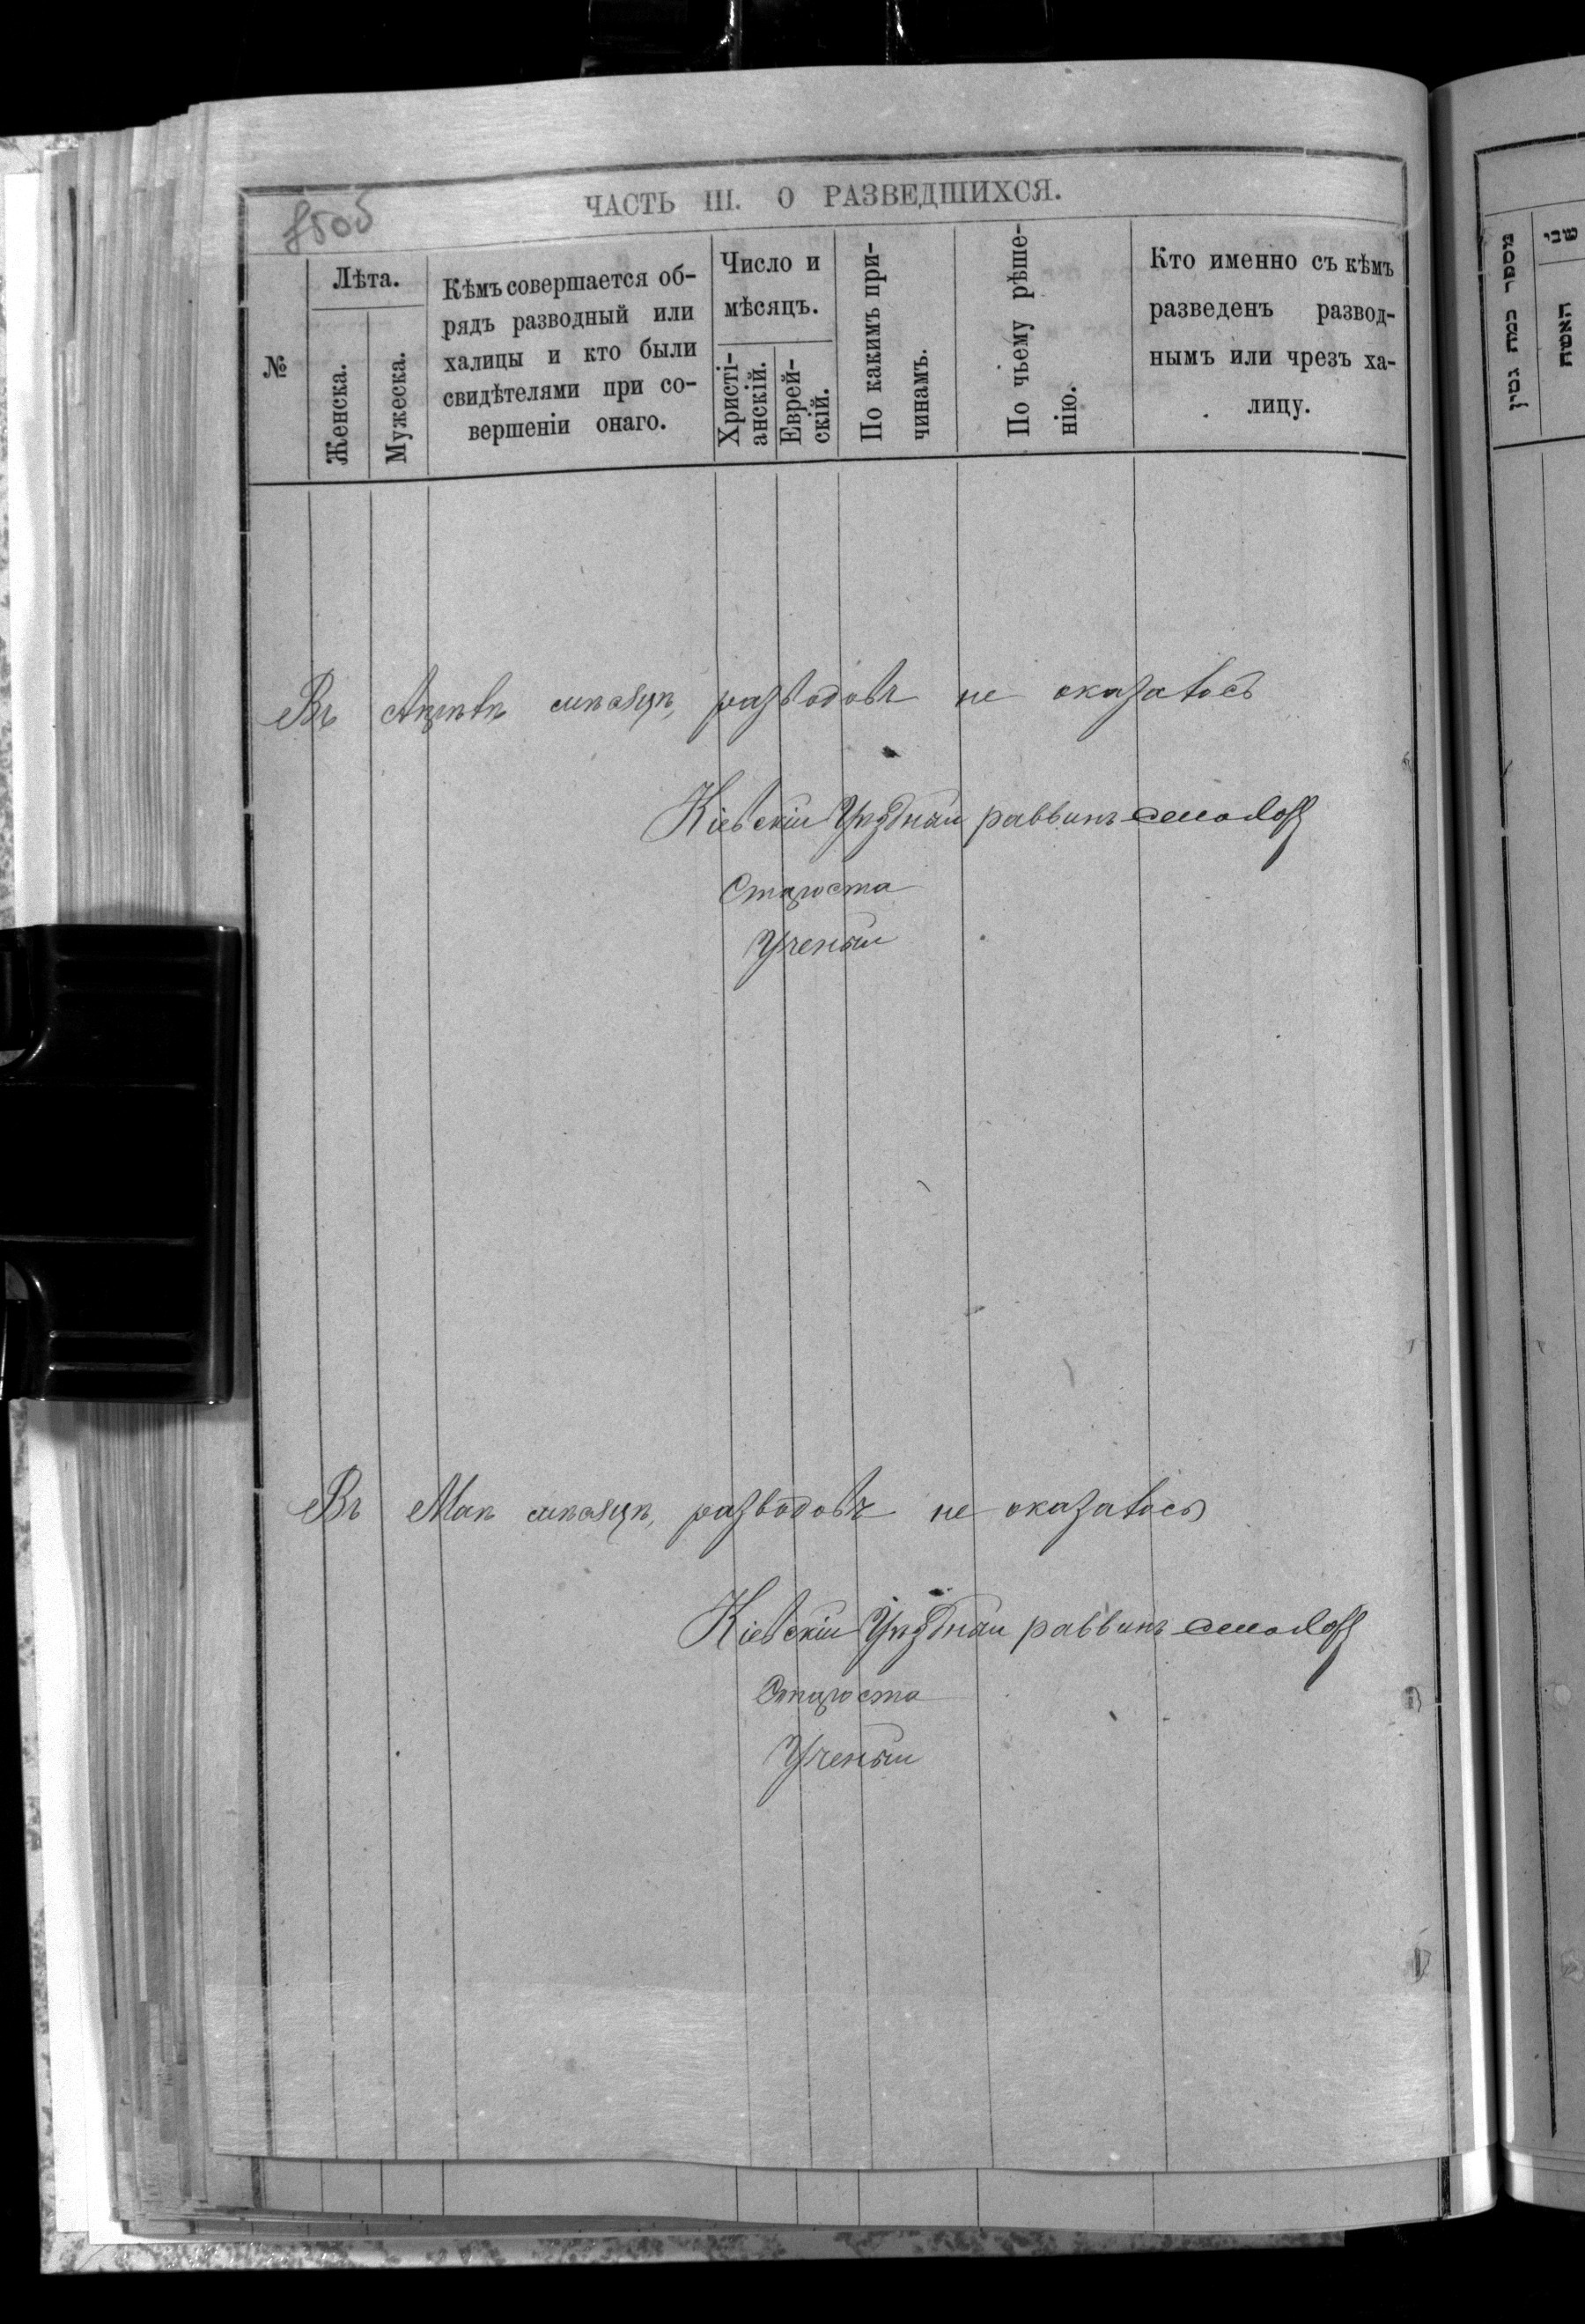 850б
ЧАСТЬ III. О РАЗВЕДШИХСЯ.
№
Лѣта.
Женска.
Мужеска.
Кѣмъ совершается об-
рядъ разводный или
халицы и кто были
свидѣтелями при со-
вершеніи онаго.
Число и
мѣсяцъ.
Христі-
анскій.
Еврей-
скій.
По какимъ при-
чинамъ.
По чьему рѣше-
нію.
Кто именно съ кѣмъ
разведенъ развод-
нымъ или чрезъ ха-
лицу.
Въ Апрѣлѣ мѣсяцѣ, разводовъ не оказалось
Кіевскій Уѣздный раввинъ
Староста
Ученый
Въ Маѣ мѣсяцѣ, разводовъ не оказалось
Кіевскій Уѣздный раввинъ
Староста
Ученый
מספר כמה גטין
האשה